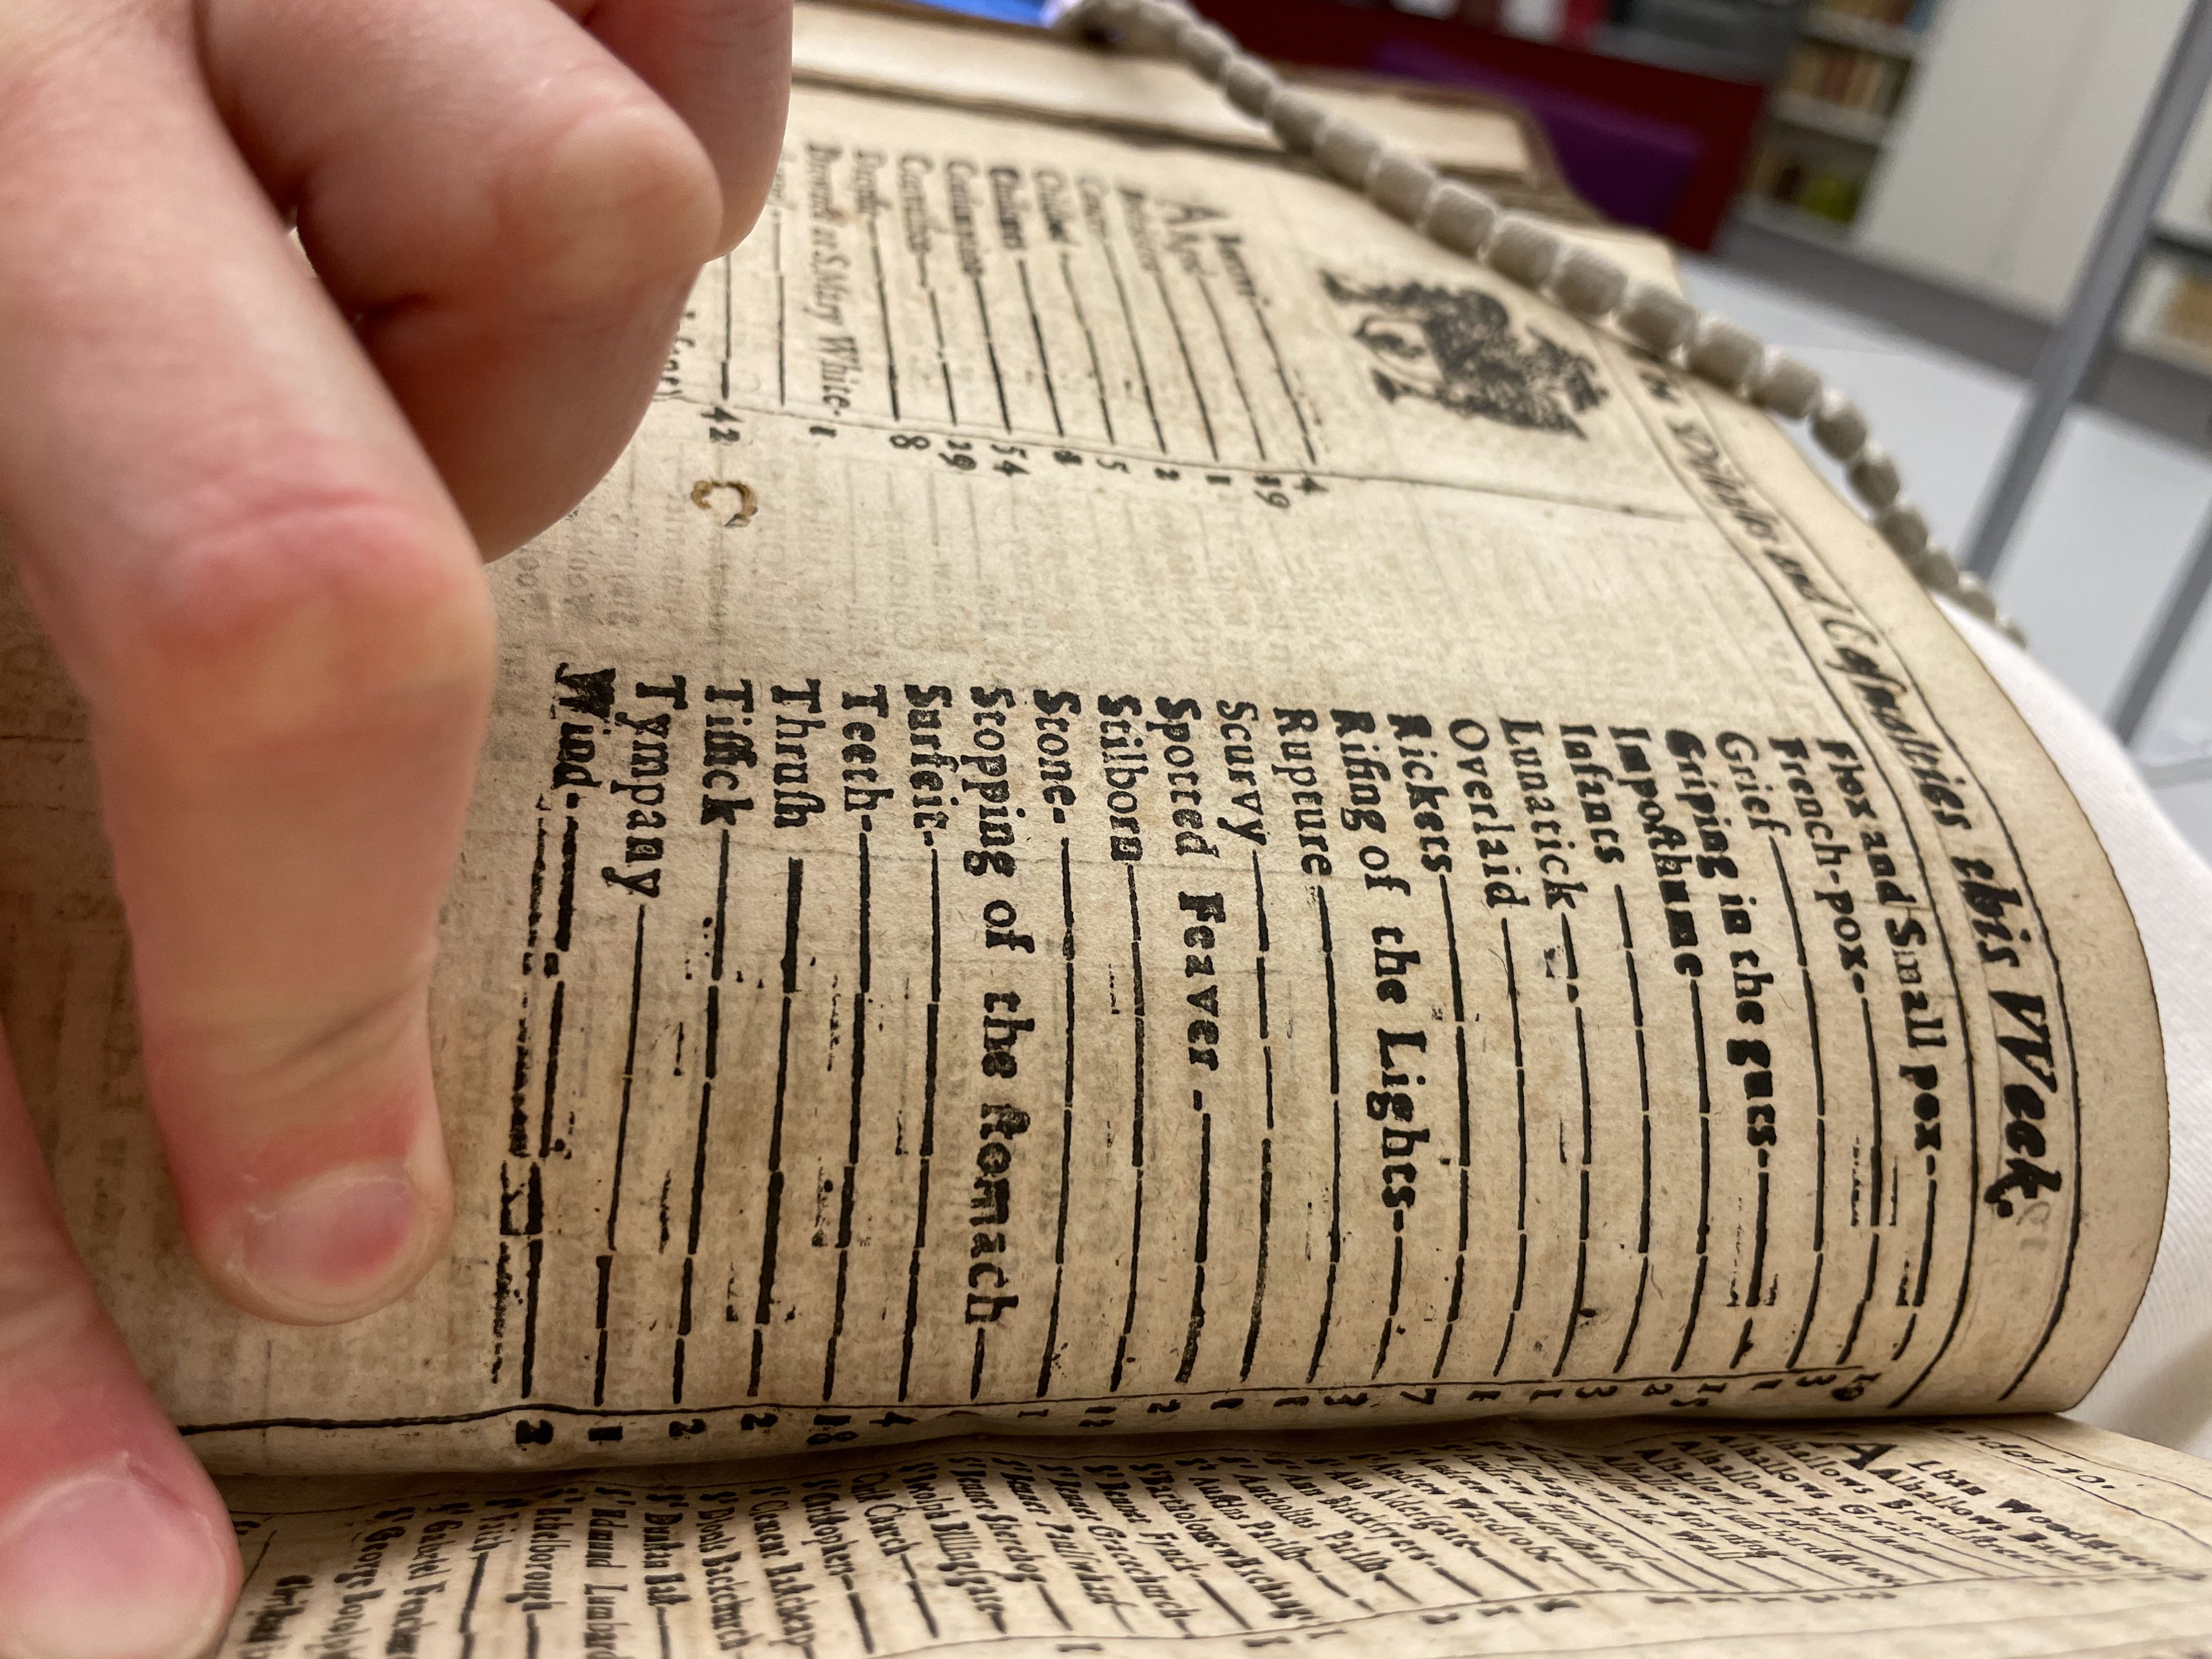 The Diseases and Casualties this Week.
Abortive 4
Aged 19
Bedridden 1
Cancer 2
Childbed 5
Chrisomes 8
Consumption 54
Convulsion 29
Dropsie 8
Drowned at S. Mary White- 1
42
Flox and Small pox 10
French-pox 3
Grief 1
Griping in the guts 15
Imposthume 2
Infants 3
Lunatick 1
Overlaid 1
Rickets 7
Rising of the Lights 3
Rupture 1
Scurvy 1
Spotted Feaver 2
Stilborn 12
Stone 1
Stopping of the stomach
Surfeit 4
Teeth 18
Thrush 2
Tissick 2
Tympany 1
Wind 2
ALban Woodstreet
Alhallows Barkin
Alhallows Breadstreet
Alhallows Great
Alhallows Honylane
Alhallows Lesse
Alhallows Lumbardstreet
Alhallows Staining
Alhallows the Wall
S. Andrew Hubbard
S. Andrew Undershaft
S. Andrew Wardrobe
S. Ann Aldersgate
S. Ann Blackfryers
S. Antholins Parish
S. Austins Parish
S. Bartholomew Exchange
S. Bennet Fynck
S. Bennet Gracechurch
S. Bennet Paulswharf
S. Bennet Sherehog
S. Botolph Billingsgate
Christ Church
S. Christophers
S. Clement Eastcheap
S. Dionis Backchurch
S. Dunstan East
S. Edmund Lumbard
S. Ethelborough
S. Faith
S. Gabriel Fenchurch
S. George Botolph